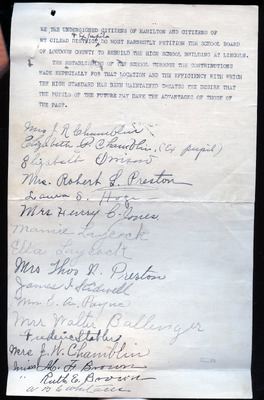 WE THE UNDERSIGNED CITIZENS OF HAMILTON AND CITIZENS OF
MT GILEAD DISTRICT, DO MOST EARNESTLY PETITION THE SCHOOL BOARD
OF LOUDOUN COUNTY TO REBUILD THE HIGH SCHOOL BUILDING AT LINCOLN.
THE ESTABLISHING OF THE SCHOOL THROUGH THE CONTRIBUTIONS
MADE ESPECIALLY FOR THAT LOCATION AND THE EFFICIENCY WITH WHICH
THE HIGH STANDARD HAS BEEN MAINTAINED CREATES THE DESIRE THAT
THE PUPILS OF THE FUTURE MAY HAVE THE ADVANTAGES OF THOSE OF
THE PAST.
Mrs J R Chamblin
Elizabeth P. Chamblin, (Ex pupil)
Elizabeth
Mrs. Robert L. Preston
Laura S.
Mrs Henry C. Jones
Mannie Laycock
Etta Laycock
Mrs Thos R. Preston
James I Kidwell
Mrs E. A. Payne
Mrs Walter Ballenger
Frederic Stabler
Mrs E. W. Chamblin
Miss M. F. Brown
" Ruth E. Brown